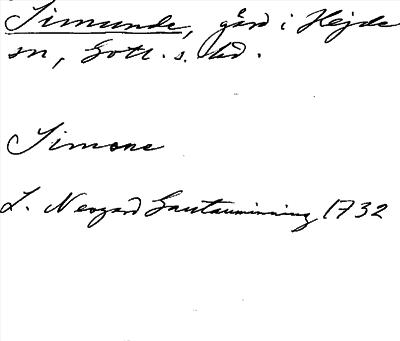 Simunde, gård i Hejde
sn, Gotl. s. hd.
Simone
L. Neogard Gautauminning 1732